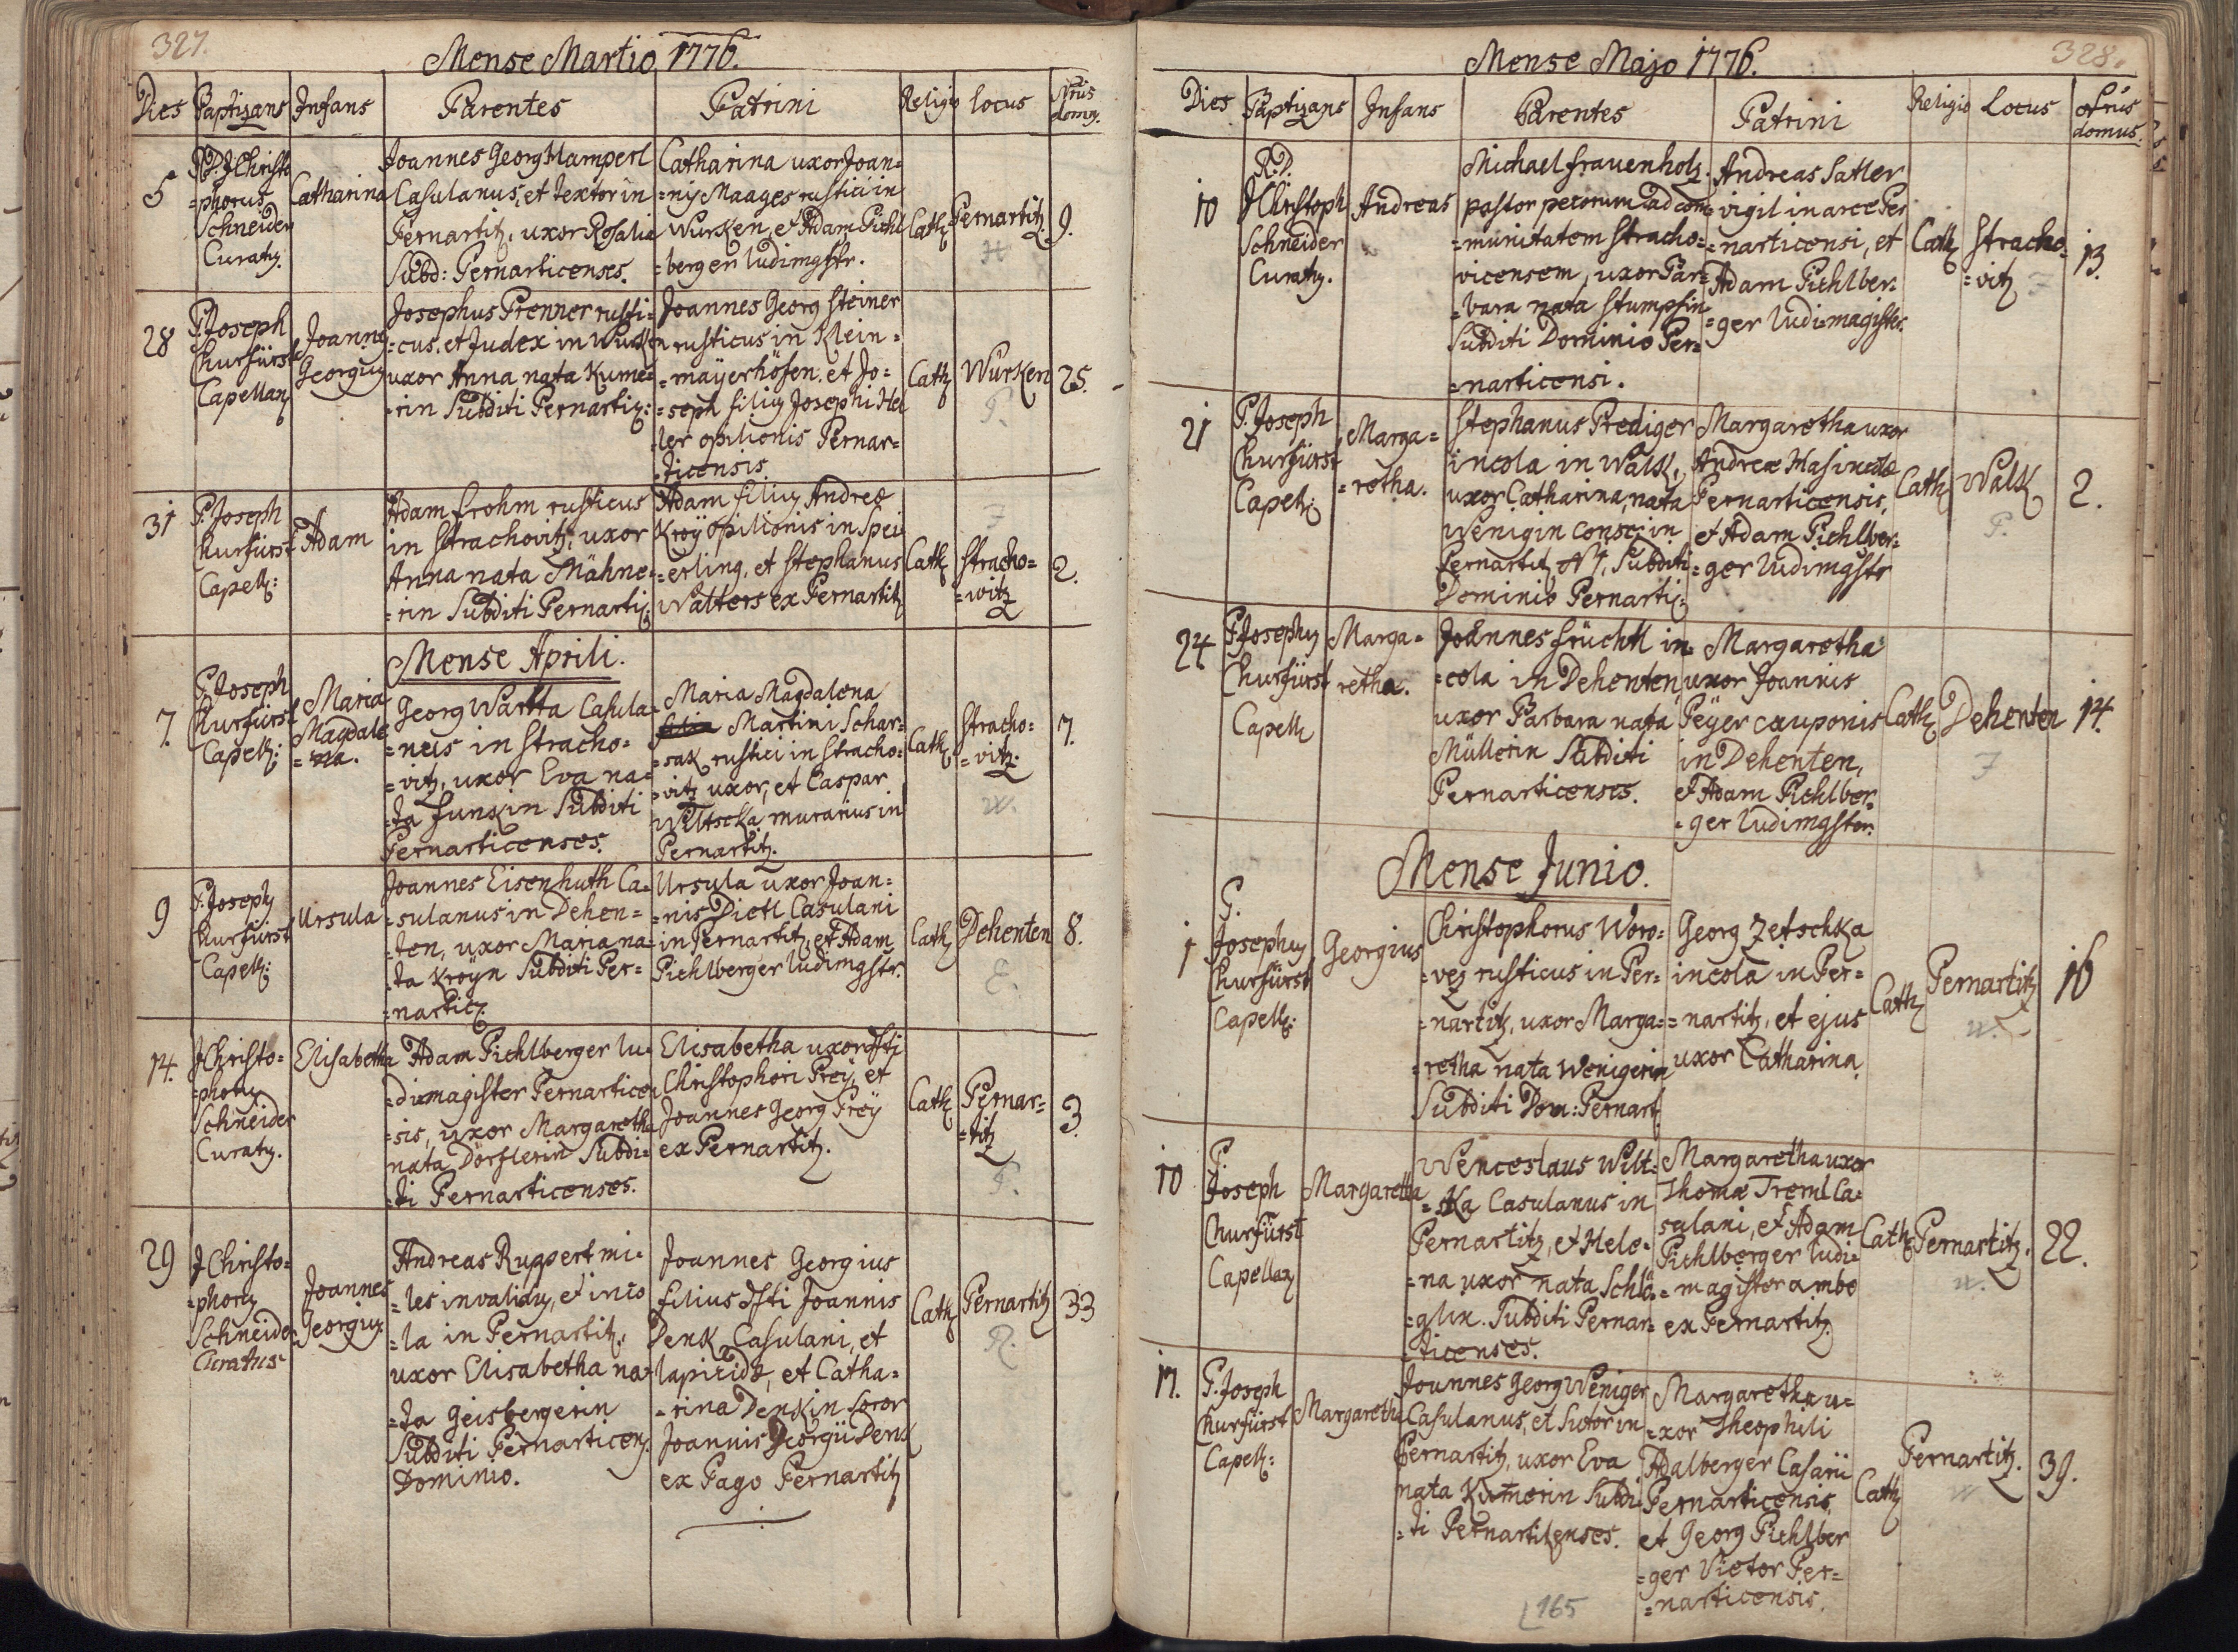 327.
Mense Martio 1776.
Dies Baptizans Infans Parentes Patrini Religio locus Nrus domq.
5
R.D. JChristo
=phorus
Schneider
Curatq.
Catharina
Joannes Georg Hamperl
Casulanus, et textor in
Pernartitz, uxor Rosalia
Subd: Pernarticenses.
Catharina uxor Joan=
=nis Maages rustici in
Wurken, et Adam Pichl
=berger ludimgstr.
Cath
Pernartitz
H
9.
28
P. Joseph
Churfürst
Capellanq
Joannes
Georgiq
Josephus Prenner rusti=
=cus, et Judex in Wurken
uxor Anna nata Kume=
=rin Subditi Pernartic:
Joannes Georg Steiner
rusticus in Klein=
=mäyerhöfen, et Jo=
=seph filiq Josephi Hel
ler opilionis Pernar=
=ticensis
Cath
Wurken
P.
25.
31
P. Joseph
Churfürst
Capell:
Adam
Adam frohm rusticus
in Strachovitz, uxor
Anna nata Mähne=
=rin Subditi Pernartic:
Adam filiq Andreæ
Kroÿ opilionis in Spei
=erling, et Stephanus
Walters ex Pernartitz
Cath
Stracho=
=witz
2.
Mense Aprili.
7.
P. Joseph
Churfürst
Capell:
Maria
Magdale
=na.
Georg Wartta Casula=
=neus in Stracho=
=vitz, uxor Eva na=
=ta Junkin Subditi
Pernarticenses.
Maria Magdalena
Martini Schar=
=sak rustici in Stracho=
=vitz uxor, et Caspar
Wiltscka murarius in
Pernartitz.
Cath
Stracho=
=vitz.
w.
7.
9
P. Joseph
Churfürst
Capell:
Ursula
Joannes Eisenhuth Ca=
=sulanus in Dehen=
=ten, uxor Maria na=
=ta Kroÿn Subditi Per=
=nartic.
Ursula uxor Joan=
=nis Dietl Casulani
in Pernartitz, et Adam
Pichlberger ludimgstr.
Cath
Dehenten
E.
8.
14.
JChristo=
=phorq
Schneider
Curatq.
Elisabetha
Adam Pichlberger lu=
=dimagister Pernarticen
=sis, uxor Margaretha
nata Dörflerin Subdi=
=ti Pernarticenses.
Elisabetha uxor dfti
Christophori Preÿ, et
Joannes Georg Preÿ
ex Pernartitz.
Cath
Pernar=
=titz
P.
3.
29
JChristo=
=phorq
Schneider
Curatus
Joannes
Georgiq
Andreas Ruppert mi=
=les invalidq, et inco
=la in Pernartitz,
uxor Elisabetha na=
=ta Geisbergerin
Subditi Pernarticen.
Dominio.
Joannes Georgius
filius dfti Joannis
Denk Casulani, et
lapicidæ, et Catha=
=rina Denkin Soror
Joannis Georgii Denk
ex Pago Pernartitz
Cath
Pernartitz
R.
33
328.
Mense Majo 1776.
Dies Baptizans Infans Parentes Patrini Religio Locus Nrus domus.
10
R.D.
JChristoph
Schneider
Curatq.
Andreas
Michael frauenholz
pastor pecorum ad com=
=munitatem Stracho=
vicensem, uxor Bar=
=bara nata Stumpfin
Subditi Dominio Per=
=narticensi.
Andreas Satler
vigil in arce Per
=narticensi, et
Adam Pichlber=
=ger ludi=magistr.
Cath
Stracho=
=vitz
13.
21
P. Joseph
Churfürst
Capell:
Marga=
=retha.
Stephanus Prediger
incola in Walk,
uxor Catharina, nata
Wenigin consc: in
Pernartitz N 1, Subditi
Dominio Pernartic:
Margaretha uxor
Andreæ Has incolæ
Pernarticensis,
et Adam Pichlber=
=ger ludimgstr
Cath
Walk
P.
2.
24
P. Josephq
Churfürst
Capell
Marga=
retha.
Joannes früchtl in=
=cola in Dehenten,
uxor Barbara nata
Müllerin Subditi
Pernarticenses.
Margaretha
uxor Joannis
Peÿer cauponis
in Dehenten,
et Adam Pichlber=
=ger ludimgster.
Cath
Dehenten
F
14.
Mense Junio.
1
P.
Josephq
Churfürst
Capell:
Georgius
Christophorus Woro=
=vez rusticus in Per=
=nartitz, uxor Marga=
=retha nata Wenigerin
Subditi Dom: Pernart.
Georg Zetschka
incola in Per=
=nartitz, et ejus
uxor Catharina.
Cath
Pernartitz
w.
16
10
P.
Joseph
Churfürst
Capellanq
Margaretha
Wenceslaus Wilt=
=ska Casulanus in
Pernartitz, et Hele=
=na uxor nata Schlö=
=glin. Subditi Pernar=
=ticenses.
Margaretha uxor
Thomæ Treml Ca=
sulani, et Adam
Pichlberger ludi=
=magister ambo
ex Pernartitz.
Cath
Pernartitz.
w.
22.
17.
P. Joseph
Churfürst
Capell:
Margaretha
Joannes Georg Weniger
Casulanus, et Sutor in
Pernartitz, uxor Eva
nata Kumerin Subdi
=ti Pernartitenses.
Margaretha u=
=xor Theophili
Adalberger Casarii
Pernarticensis,
et Georg Pichlber
=ger Vietor Per=
=narticensis.
Cath
Pernartitz.
w
39.
165